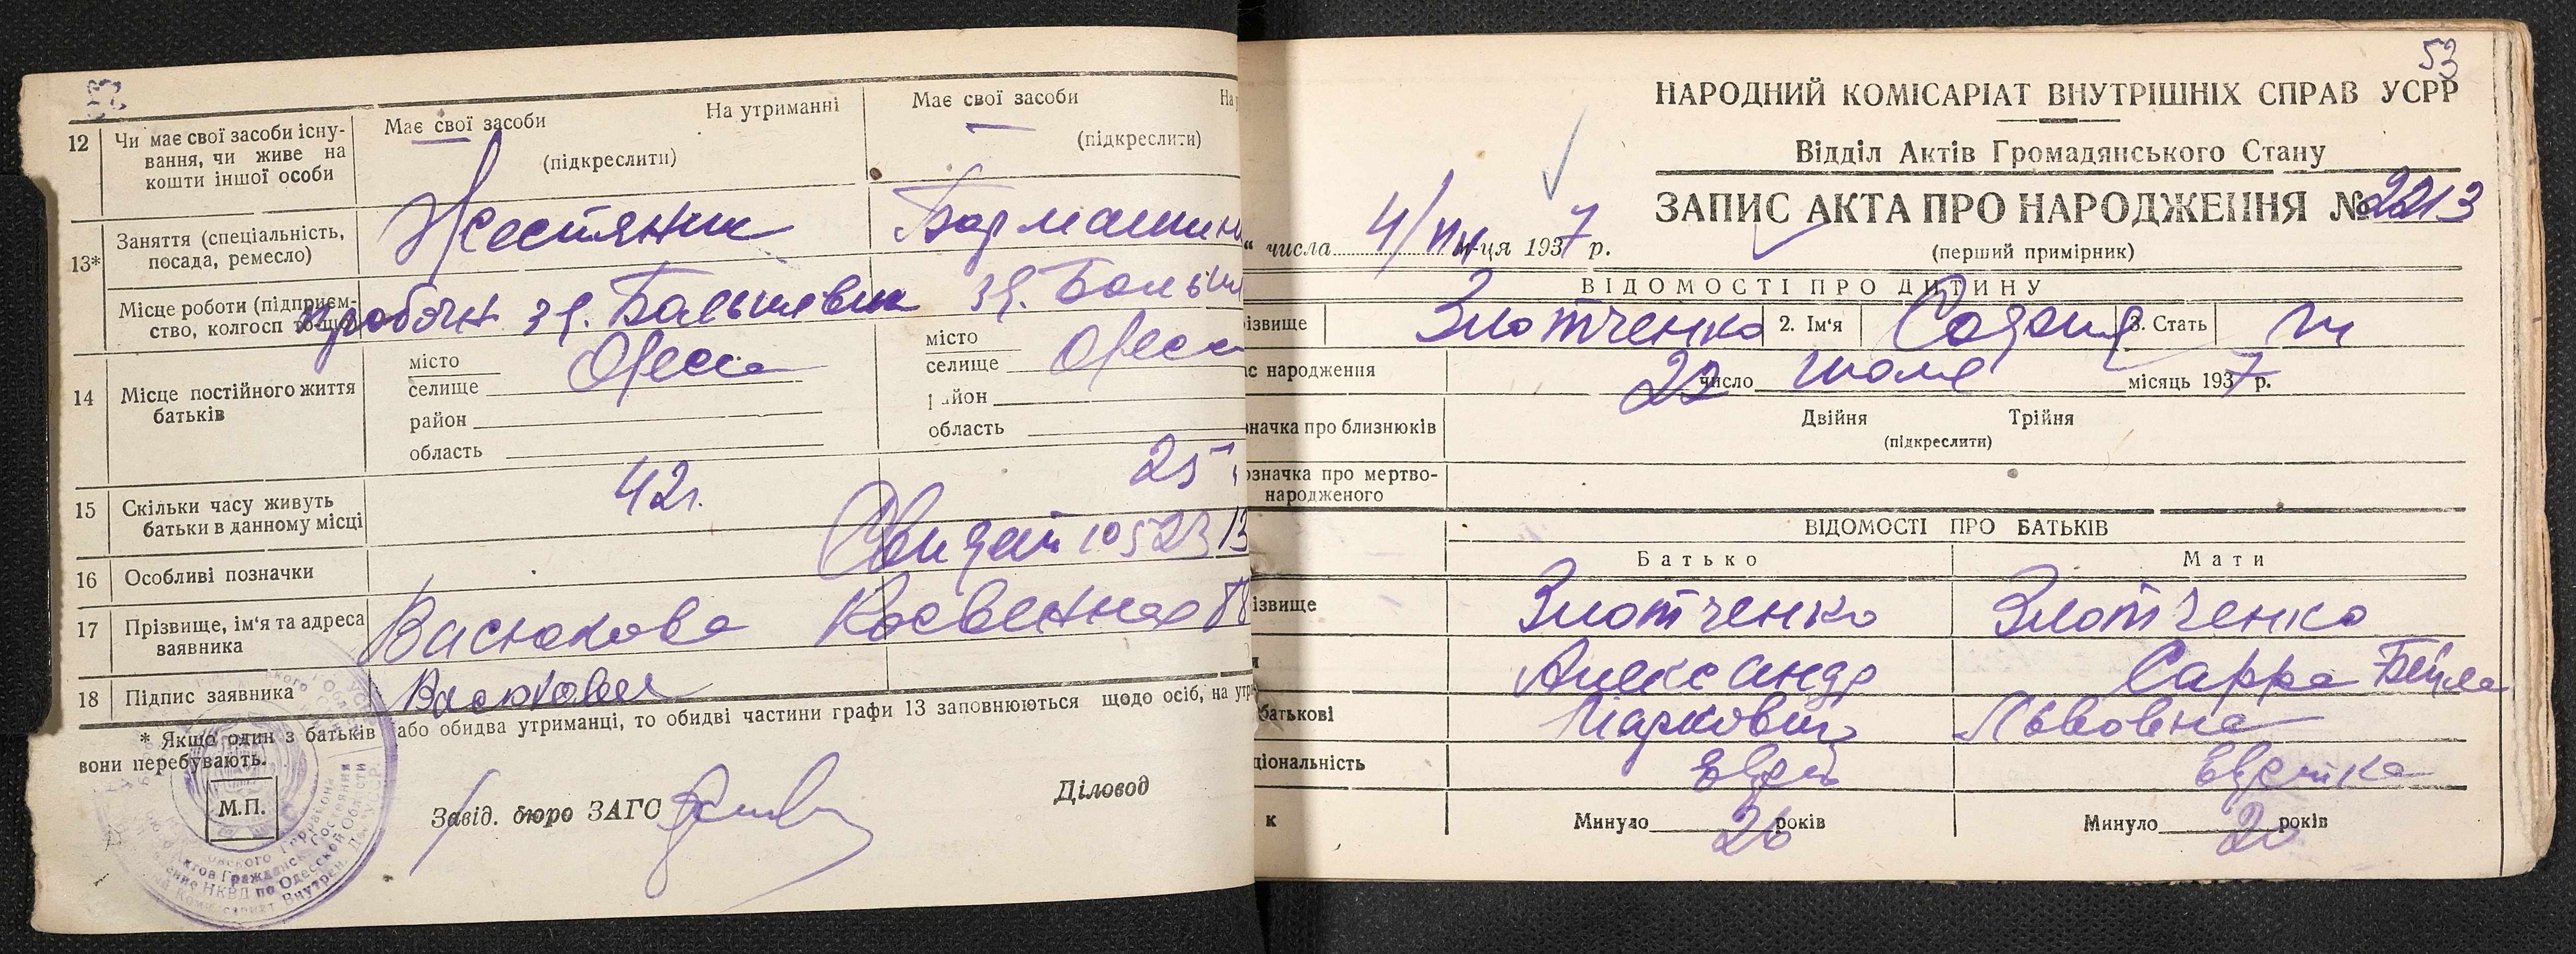 12
Чи має свої засоби існу-
вання, чи живе на
кошти іншої особи
Має свої засоби
На утриманні
(підкреслити)
Має свої засоби
(підкреслити)
13*
Заняття (спеціальність,
посада, ремесло)
Жестяник
Місце роботи (підприєм-
ство, колгосп тощо)
з д. Большевик
з д. Больш
14
Місце постійного життя
батьків
місто
селище
Одесса
район
область
місто
селище
Одесс
район
область
15
Скільки часу живуть
батьки в данному місці
42г.
25
16
Особливі позначки
10523
17
Прізвище, ім'я та адреса
заявника
Васюкова Косвенная
18
Підпис заявника
Васюкова
* Якщо один з батьків або обидва утриманці, то обидві частини графи 13 заповнюються щодо осіб, на утр
вони перебувають.
М.П.
Завід. бюро ЗАГС
Діловод
53
НАРОДНИЙ КОМІСАРІАТ ВНУТРІШНІХ СПРАВ УСРР
Відділ Актів Громадянського Стану
ЗАПИС АКТА ПРО НАРОДЖЕННЯ № 2213
(перший примірник)
“ числа 4/VIII м-ця 1937 р.
ВІДОМОСТІ ПРО ДИТИНУ
ізвище
Злотченко
2. Ім'я
3. Стать
ас народження
22 число июля місяць 1937 р.
значка про близнюків
Двійня
Трійня
(підкреслити)
означка про мертво-
народженого
ВІДОМОСТІ ПРО БАТЬКІВ
Батько
Мати
ізвище
Злотченко
Злотченко
Александр
Сарра Бейла
батькові
Маркович
Львовна
ціональність
Еврей
Еврейка
к
Минуло 26 років
Минуло 20 років